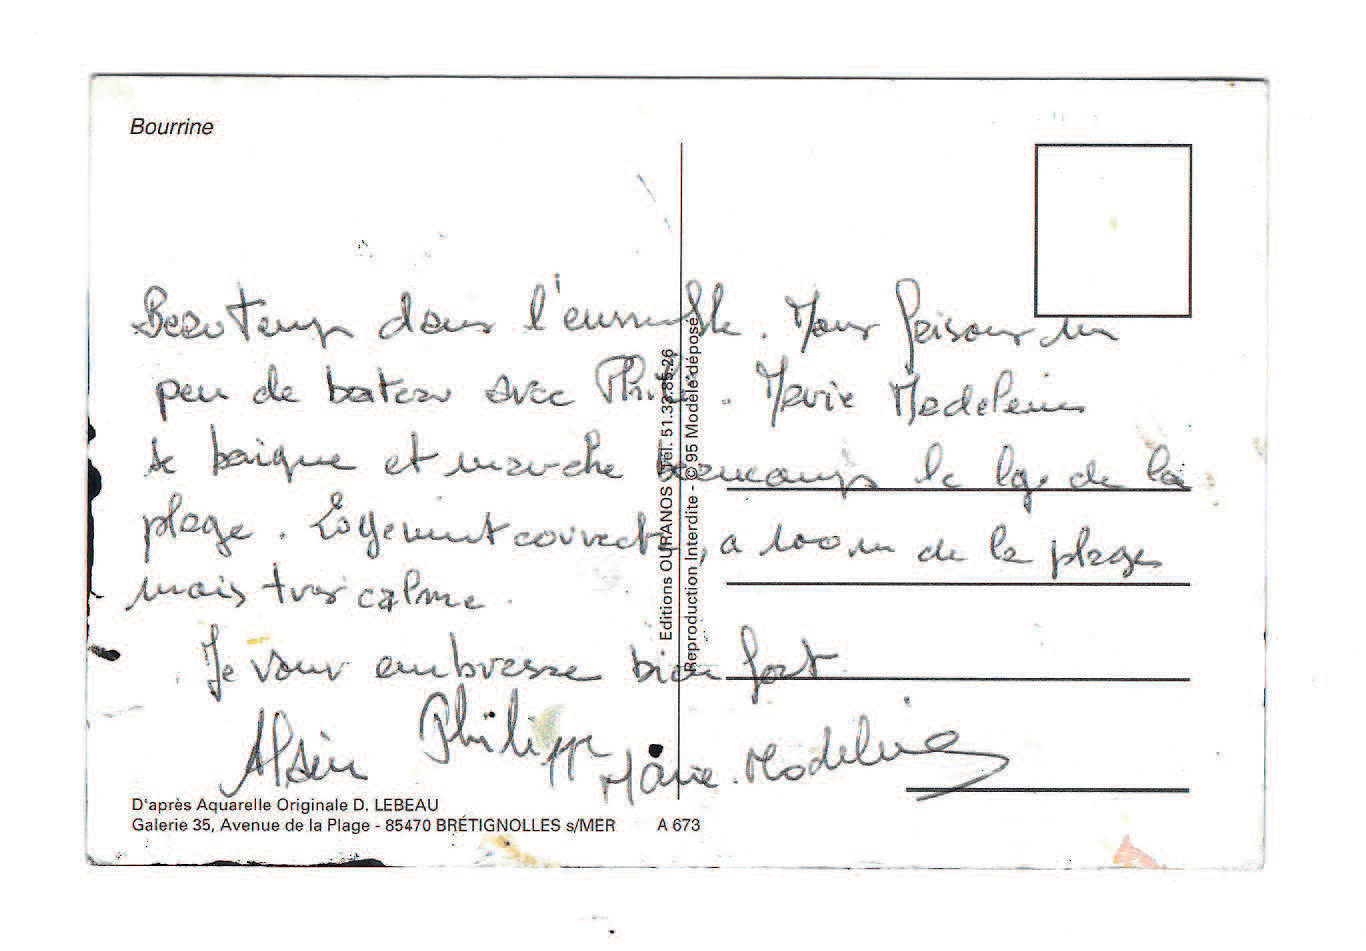 Bourrine
Beau temps dans l'ensemble. Nous faisons un
peu de bateau avec Phili. Marie Madeleine
se baigne et marche beaucoup le lg de la
plage. Logement correct, a 100 m de la plage
mais tres calme.
Je vous embrasse bien fort
Alain Philippe Marie-Madeleine
Editions OURANOS Tél. 51.33.85.26
Reproduction Interdite - © 95 Modèle déposé
D'après Aquarelle Originale D. LEBEAU
Galerie 35, Avenue de la Plage - 85470 BRÉTIGNOLLES s/MER A 673